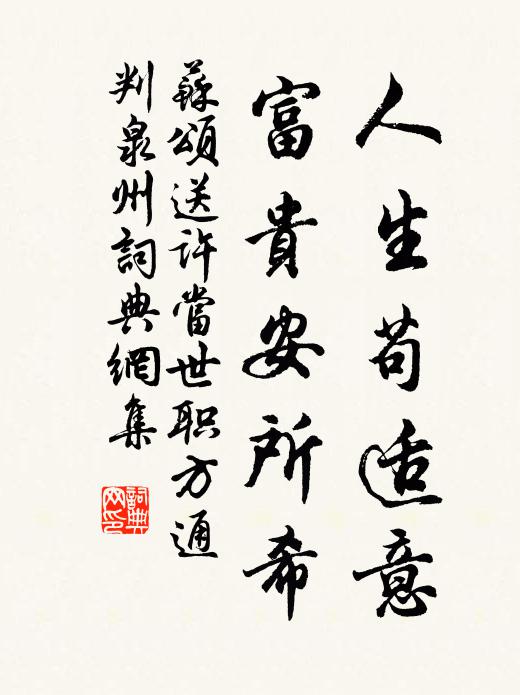 人生苟适意
富貴安所希
蘇頌送許當世职方通
判泉州詞典網集
詞典
网印